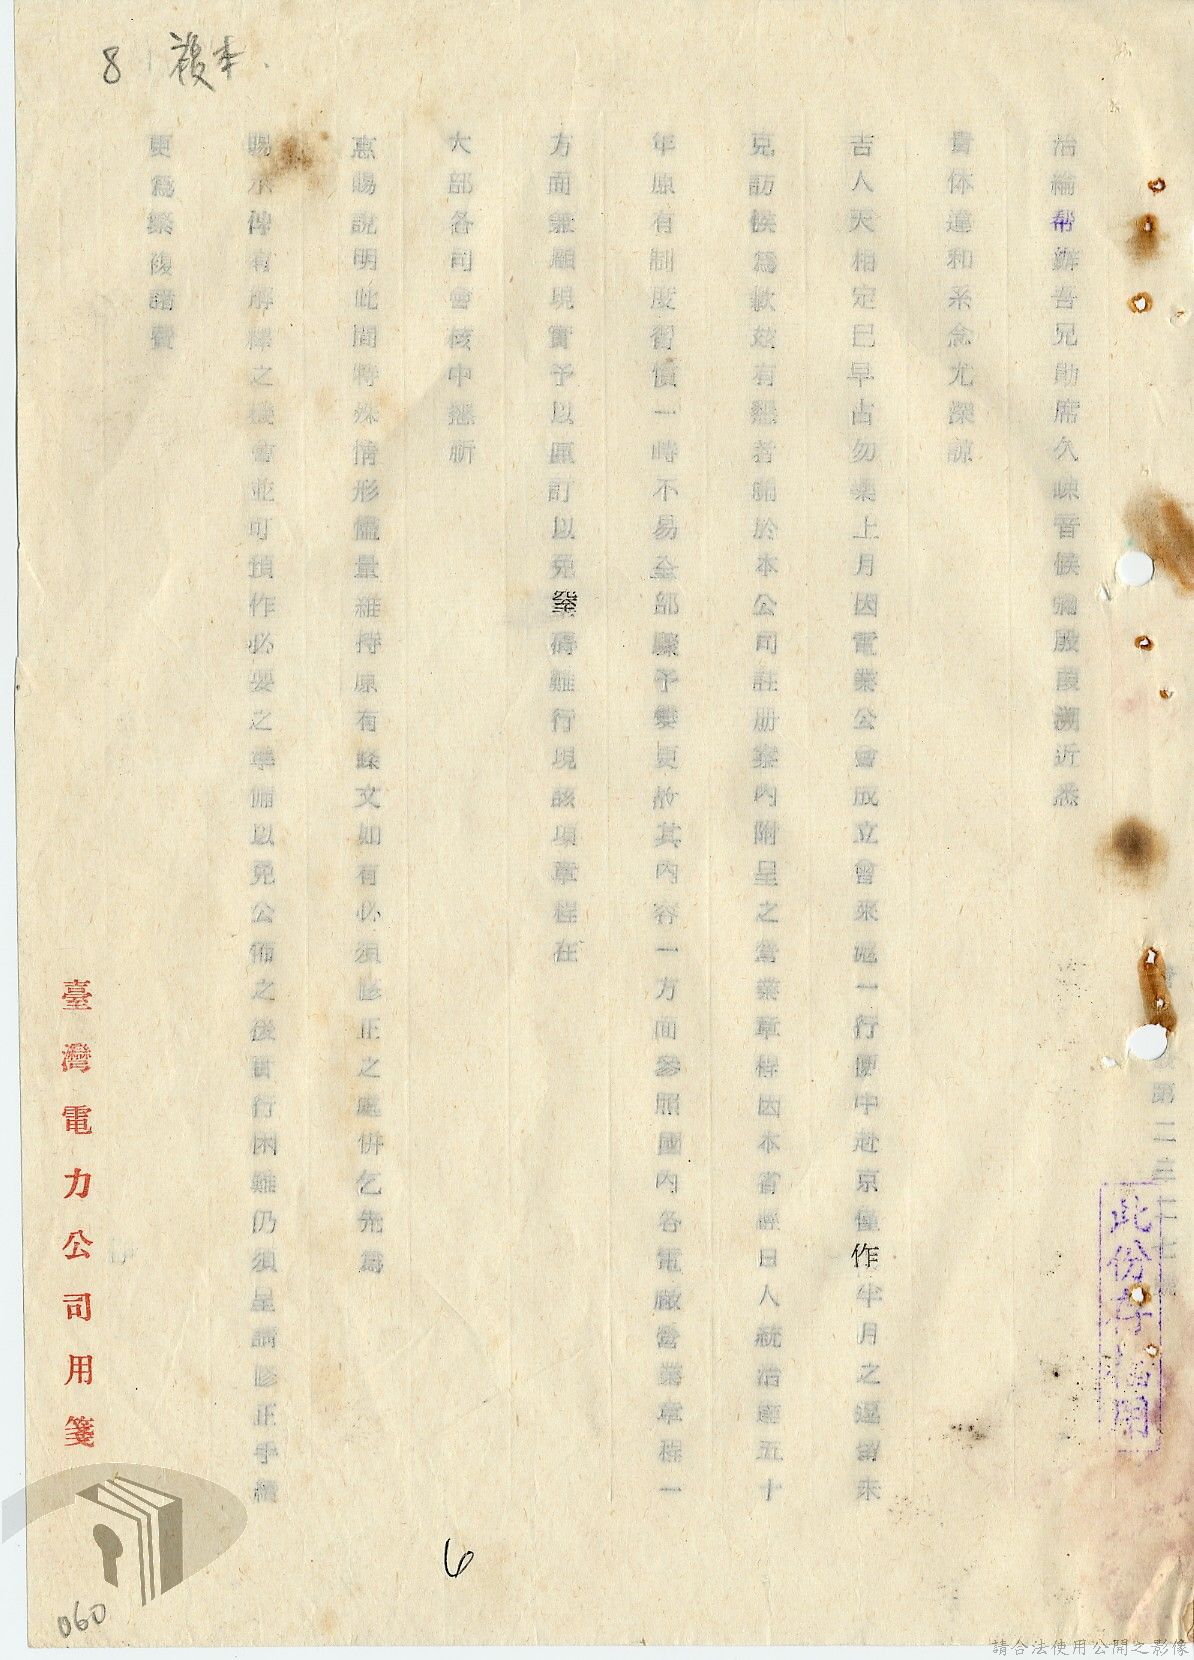 8 複本
第二三二七號
此份存檔用
治綸帮辦吾兄勛席久疎音候翰殷葭溯近悉
貴体違和系念尤深諒
吉人天相定已早占勿藥上月因電業公會成立曾來滬一行便中赴京僅作半月之逗留未
克訪候為歉茲有懇者關於本公司註册案內附呈之營業章程因本省經日人統治垂五十
年原有制度習慣一時不易全部驟予變更故其內容一方面參照國內各電廠營業章程一
方面兼顧現實予以厘訂以免窒礙難行現該項章程在
大部各司會核中懇祈
惠賜說明此間特殊情形儘量維持原有條文如有必須修正之處併乞先為
賜示俾有解釋之機會並可預作必要之準備以免公佈之後實行困難仍須呈請修正手續
更為繁複諸費
臺灣電力公司用箋
6
060
請合法使用公開之影像